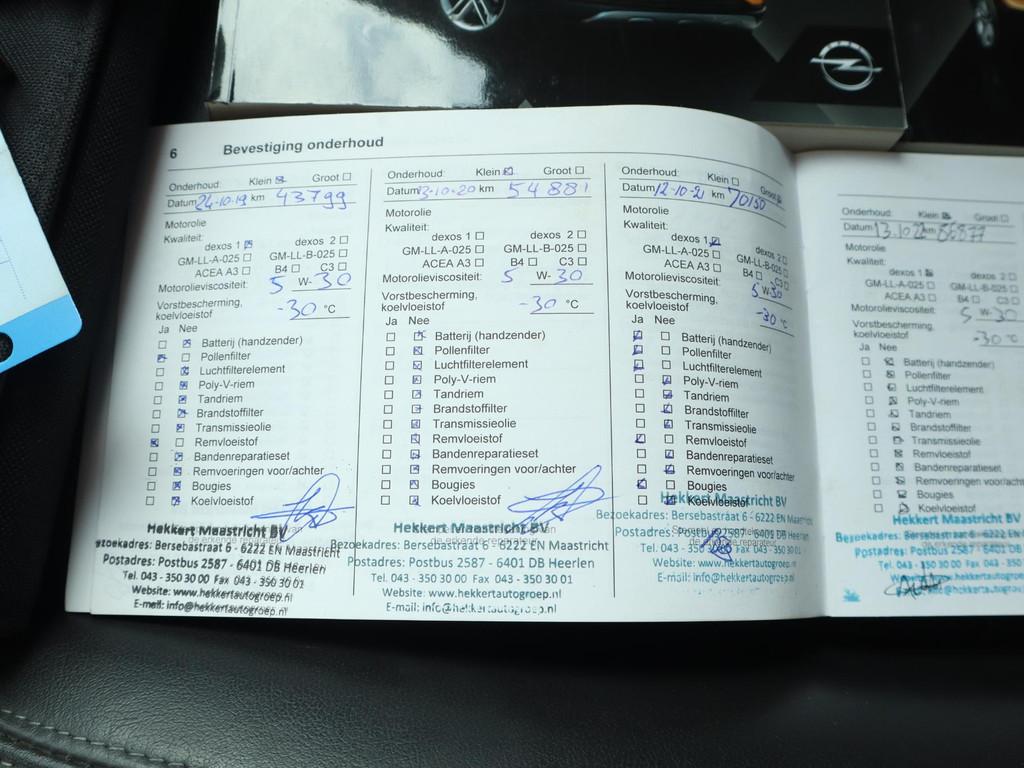 6 Bevestiging onderhoud
Onderhoud: Klein ☒ Groot ☐
Datum 24-10-19 km 43799
Motorolie
Kwaliteit:
dexos 1 ☒ dexos 2 ☐
GM-LL-A-025 ☐ GM-LL-B-025 ☐
ACEA A3 ☐ B4 ☐ C3 ☐
Motorolieviscositeit: 5 W- 30
Vorstbescherming,
koelvloeistof -30 °C
Ja Nee
☐ ☒ Batterij (handzender)
☒ ☐ Pollenfilter
☐ ☒ Luchtfilterelement
☐ ☒ Poly-V-riem
☐ ☒ Tandriem
☐ ☒ Brandstoffilter
☐ ☒ Transmissieolie
☒ ☐ Remvloeistof
☐ ☒ Bandenreparatieset
☐ ☒ Remvoeringen voor/achter
☐ ☒ Bougies
☐ ☒ Koelvloeistof
Hekkert Maastricht BV
Bezoekadres: Bersebastraat 6 - 6222 EN Maastricht
Postadres: Postbus 2587 - 6401 DB Heerlen
Tel. 043 - 350 30 00 Fax 043 - 350 30 01
Website: www.hekkertautogroep.nl
E-mail: info@hekkertautogroep.nl
Onderhoud: Klein ☒ Groot ☐
Datum 13-10-20 km 54881
Motorolie
Kwaliteit:
dexos 1 ☐ dexos 2 ☐
GM-LL-A-025 ☐ GM-LL-B-025 ☐
ACEA A3 ☐ B4 ☐ C3 ☐
Motorolieviscositeit: 5 W- 30
Vorstbescherming,
koelvloeistof -30 °C
Ja Nee
☐ ☒ Batterij (handzender)
☐ ☒ Pollenfilter
☐ ☒ Luchtfilterelement
☐ ☒ Poly-V-riem
☐ ☒ Tandriem
☐ ☒ Brandstoffilter
☐ ☒ Transmissieolie
☐ ☒ Remvloeistof
☐ ☒ Bandenreparatieset
☐ ☒ Remvoeringen voor/achter
☐ ☒ Bougies
☐ ☒ Koelvloeistof
Hekkert Maastricht BV
Bezoekadres: Bersebastraat 6 - 6222 EN Maastricht
Postadres: Postbus 2587 - 6401 DB Heerlen
Tel. 043 - 350 30 00 Fax 043 - 350 30 01
Website: www.hekkertautogroep.nl
E-mail: info@hekkertautogroep.nl
Onderhoud: Klein ☐ Groot ☒
Datum 12-10-21 km 70150
Motorolie
Kwaliteit:
dexos 1 ☒ dexos 2 ☐
GM-LL-A-025 ☐ GM-LL-B-025 ☐
ACEA A3 ☐ B4 ☐ C3 ☐
Motorolieviscositeit: 5 W- 30
Vorstbescherming,
koelvloeistof -30 °C
Ja Nee
☒ ☐ Batterij (handzender)
☒ ☐ Pollenfilter
☒ ☐ Luchtfilterelement
☐ ☒ Poly-V-riem
☐ ☒ Tandriem
☐ ☒ Brandstoffilter
☐ ☒ Transmissieolie
☒ ☐ Remvloeistof
☐ ☒ Bandenreparatieset
☐ ☒ Remvoeringen voor/achter
☒ ☐ Bougies
☐ ☒ Koelvloeistof
Hekkert Maastricht BV
Bezoekadres: Bersebastraat 6 - 6222 EN Maastricht
Postadres: Postbus 2587 - 6401 DB Heerlen
Tel. 043 - 350 30 00 Fax 043 - 350 30 01
Website: www.hekkertautogroep.nl
E-mail: info@hekkertautogroep.nl
Onderhoud: Klein ☒ Groot ☐
Datum 13.10.22 km 86877
Motorolie
Kwaliteit:
dexos 1 ☒ dexos 2 ☐
GM-LL-A-025 ☐ GM-LL-B-025 ☐
ACEA A3 ☐ B4 ☐ C3 ☐
Motorolieviscositeit: 5 W- 30
Vorstbescherming,
koelvloeistof -30 °C
Ja Nee
☐ ☒ Batterij (handzender)
☐ ☒ Pollenfilter
☐ ☒ Luchtfilterelement
☐ ☒ Poly-V-riem
☐ ☒ Tandriem
☐ ☒ Brandstoffilter
☐ ☒ Transmissieolie
☐ ☒ Remvloeistof
☐ ☒ Bandenreparatieset
☐ ☒ Remvoeringen voor/achter
☐ ☒ Bougies
☐ ☒ Koelvloeistof
Hekkert Maastricht BV
Bezoekadres: Bersebastraat 6 - 6222 EN
Postadres: Postbus 2587 - 6401 DB
Tel. 043 - 350 30 00 Fax 043 - 350
www.hekkertautogroep.nl
info@hekkertautogroep.nl